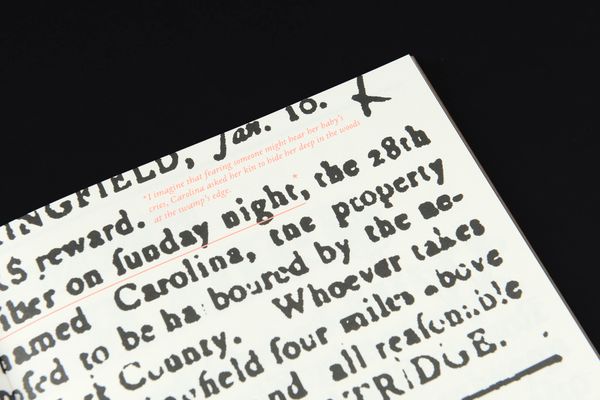 INGFIELD, Jan. 10.
*I imagine that fearing someone might hear her baby's
cries, Carolina asked her kin to hide her deep in the woods
at the swamp's edge.
*
S reward.
iber on sunday night, the 28th
named Carolina, the property
osed to be ha boured by the ne-
County. Whoever takes
field four miles above
nd all reasonable
TRIDGE.